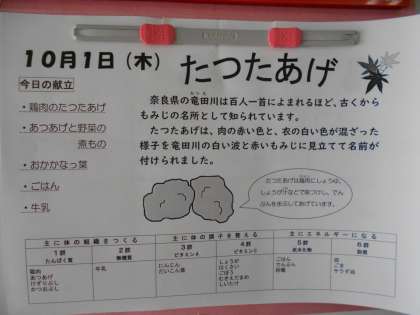 10月1日（木）
たつたあげ
今日の献立
・鶏肉のたつたあげ
・あつあげと野菜の
煮もの
・おかかなっ葉
・ごはん
・牛乳
奈良県の竜田川は百人一首によまれるほど、古くから
もみじの名所として知られています。
たつたあげは、肉の赤い色と、衣の白い色が混ざった
様子を竜田川の白い波と赤いもみじに見立てて名前が
付けられました。
たつたあげは鶏肉にしょうゆ、
しょうが汁などで味つけし、でん
ぷんを水としてあげています。
主に体の組織をつくる
主に体の調子を整える
主にエネルギーになる
1群
たんぱく質
2群
無機質
3群
ビタミンA
4群
ビタミンC
5群
炭水化物
6群
脂肪
鶏肉
あつあげ
けずりぶし
かつおぶし
牛乳
にんじん
だいこん葉
しょうが
はくさい
ごぼう
えだまめ
しいたけ
ごはん
でんぷん
砂糖
油
ごま
サラダ油